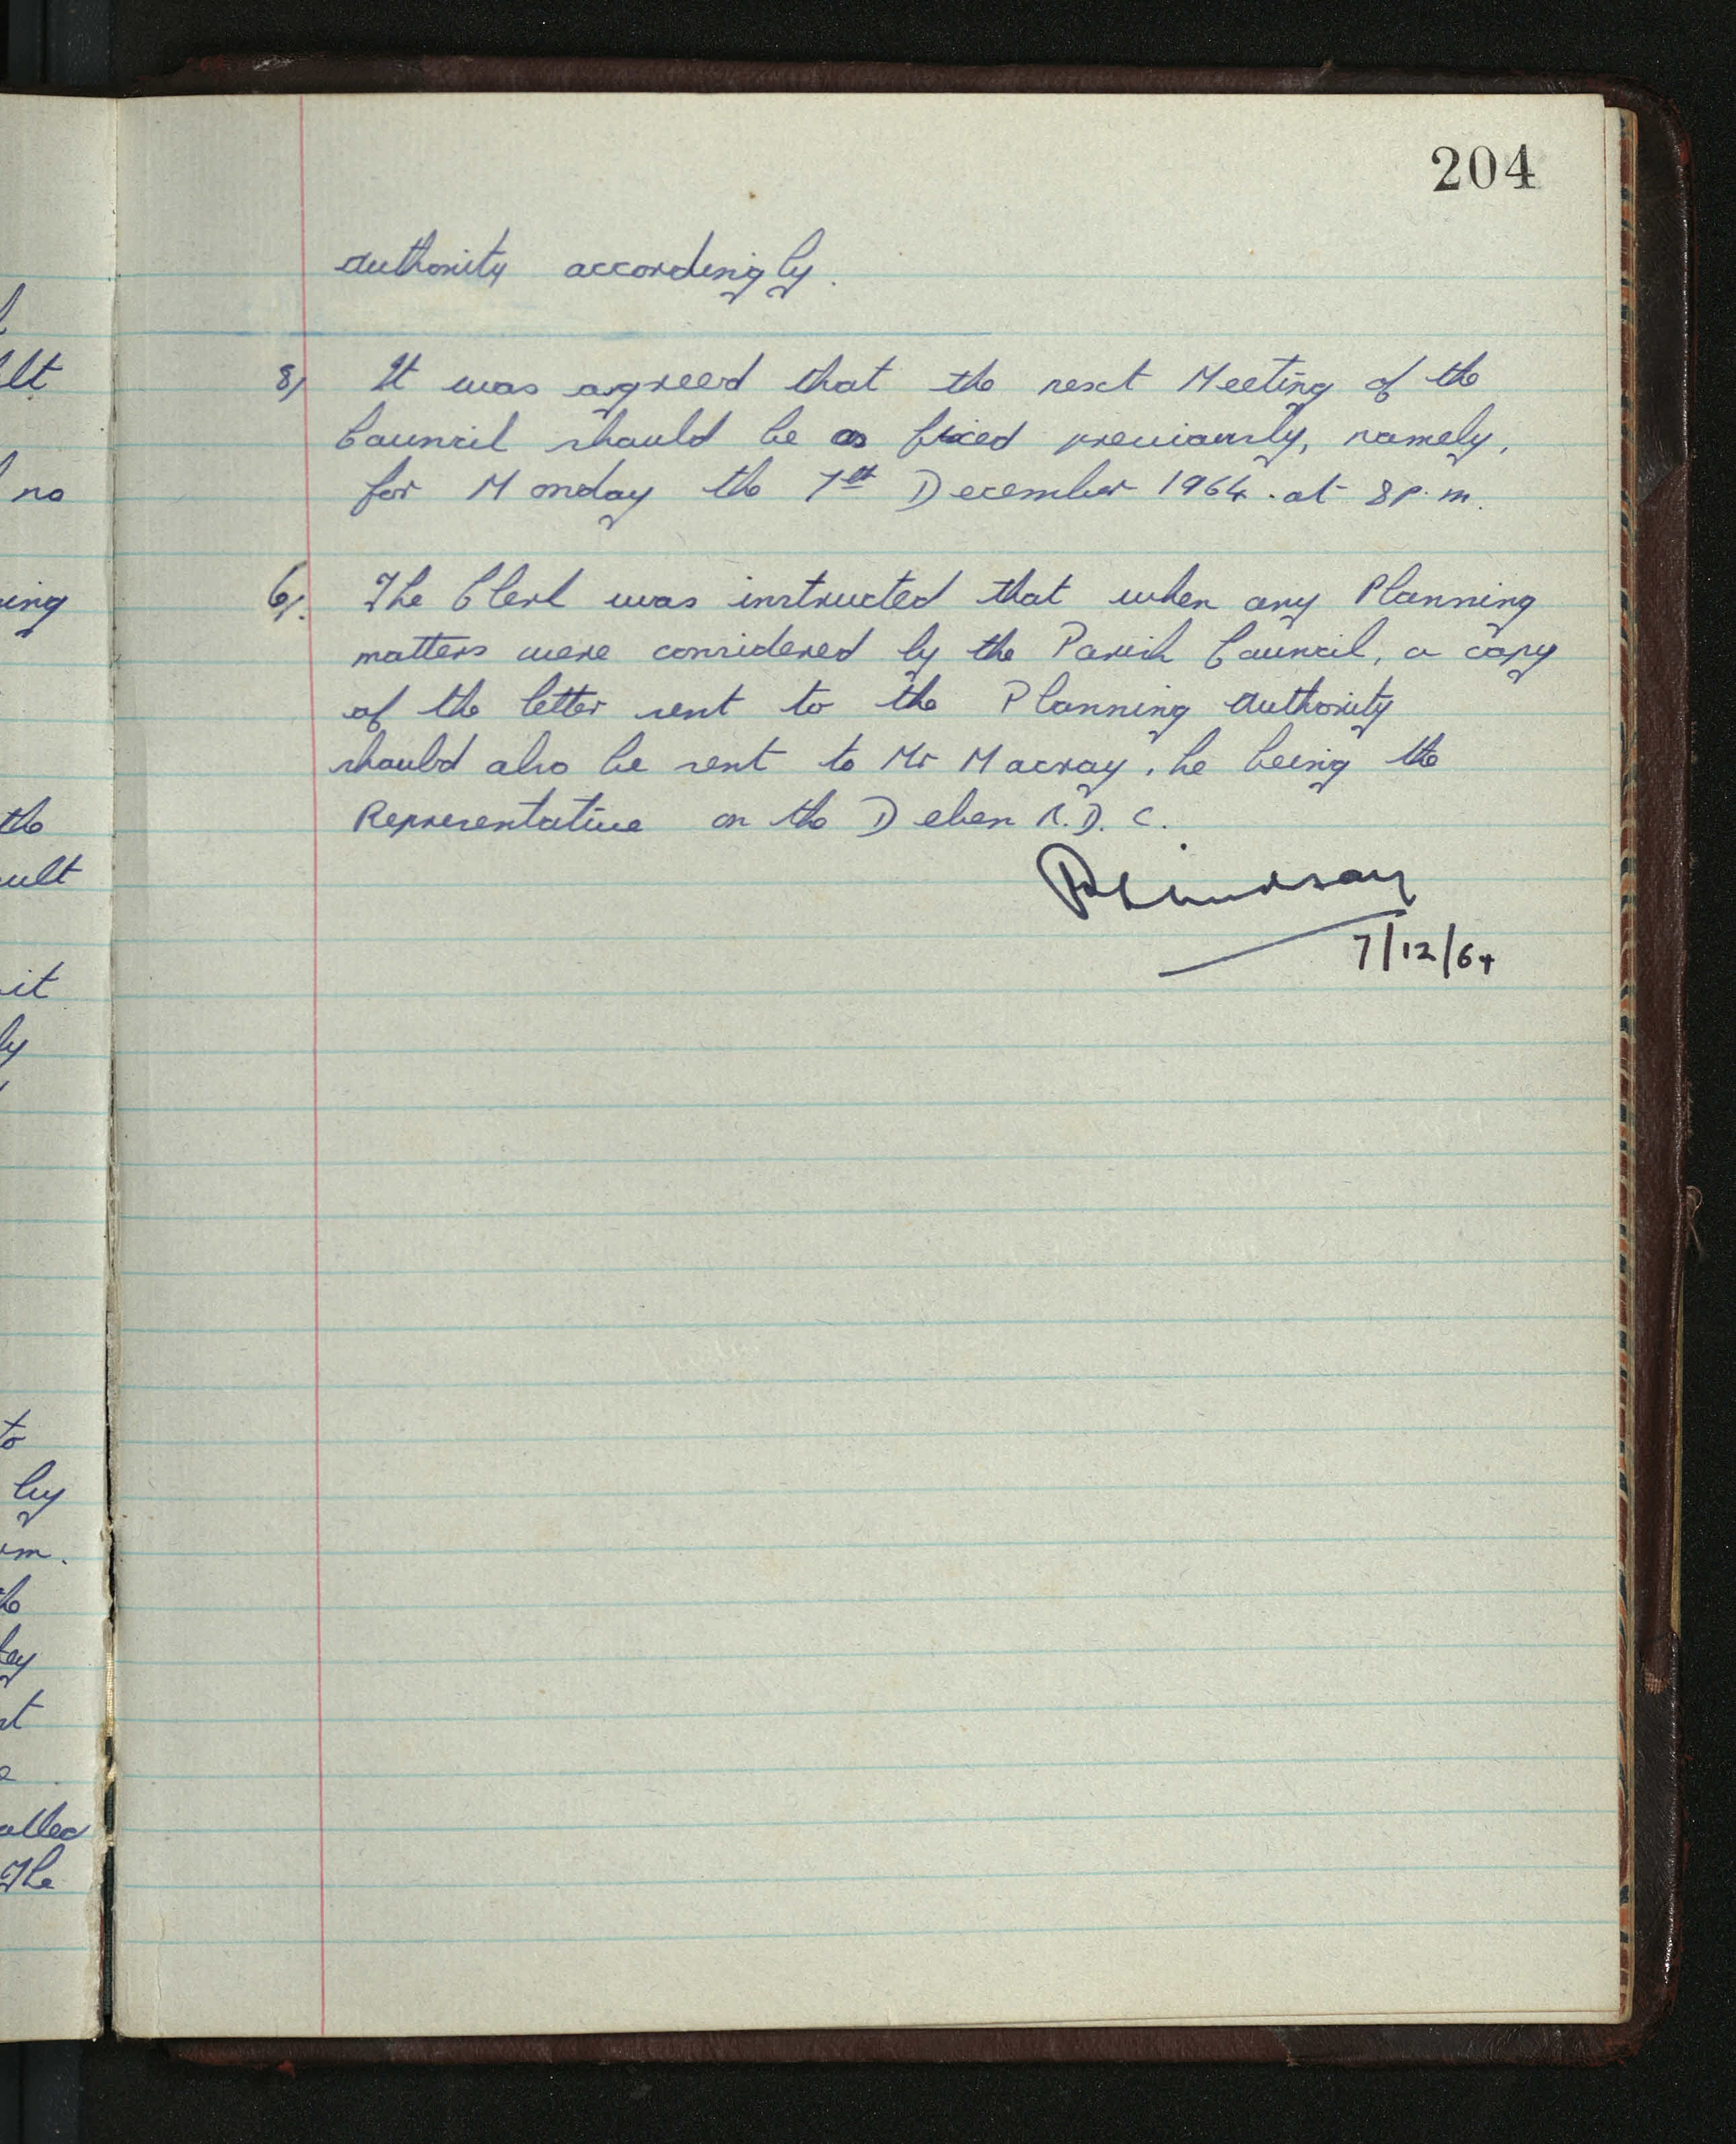 204
authority accordingly.
8/ It was agreed that the next Meeting of the
Council should be as fixed previously, namely,
for Monday the 7th December 1964. at 8 p.m.
6/. The Clerk was instructed that when any Planning
matters were considered by the Parish Council, a copy
of the letter sent to the Planning Authority
should also be sent to Mr Macray, he being the
Representative on the Deben R.D.C.
R Lindsay
7/12/64